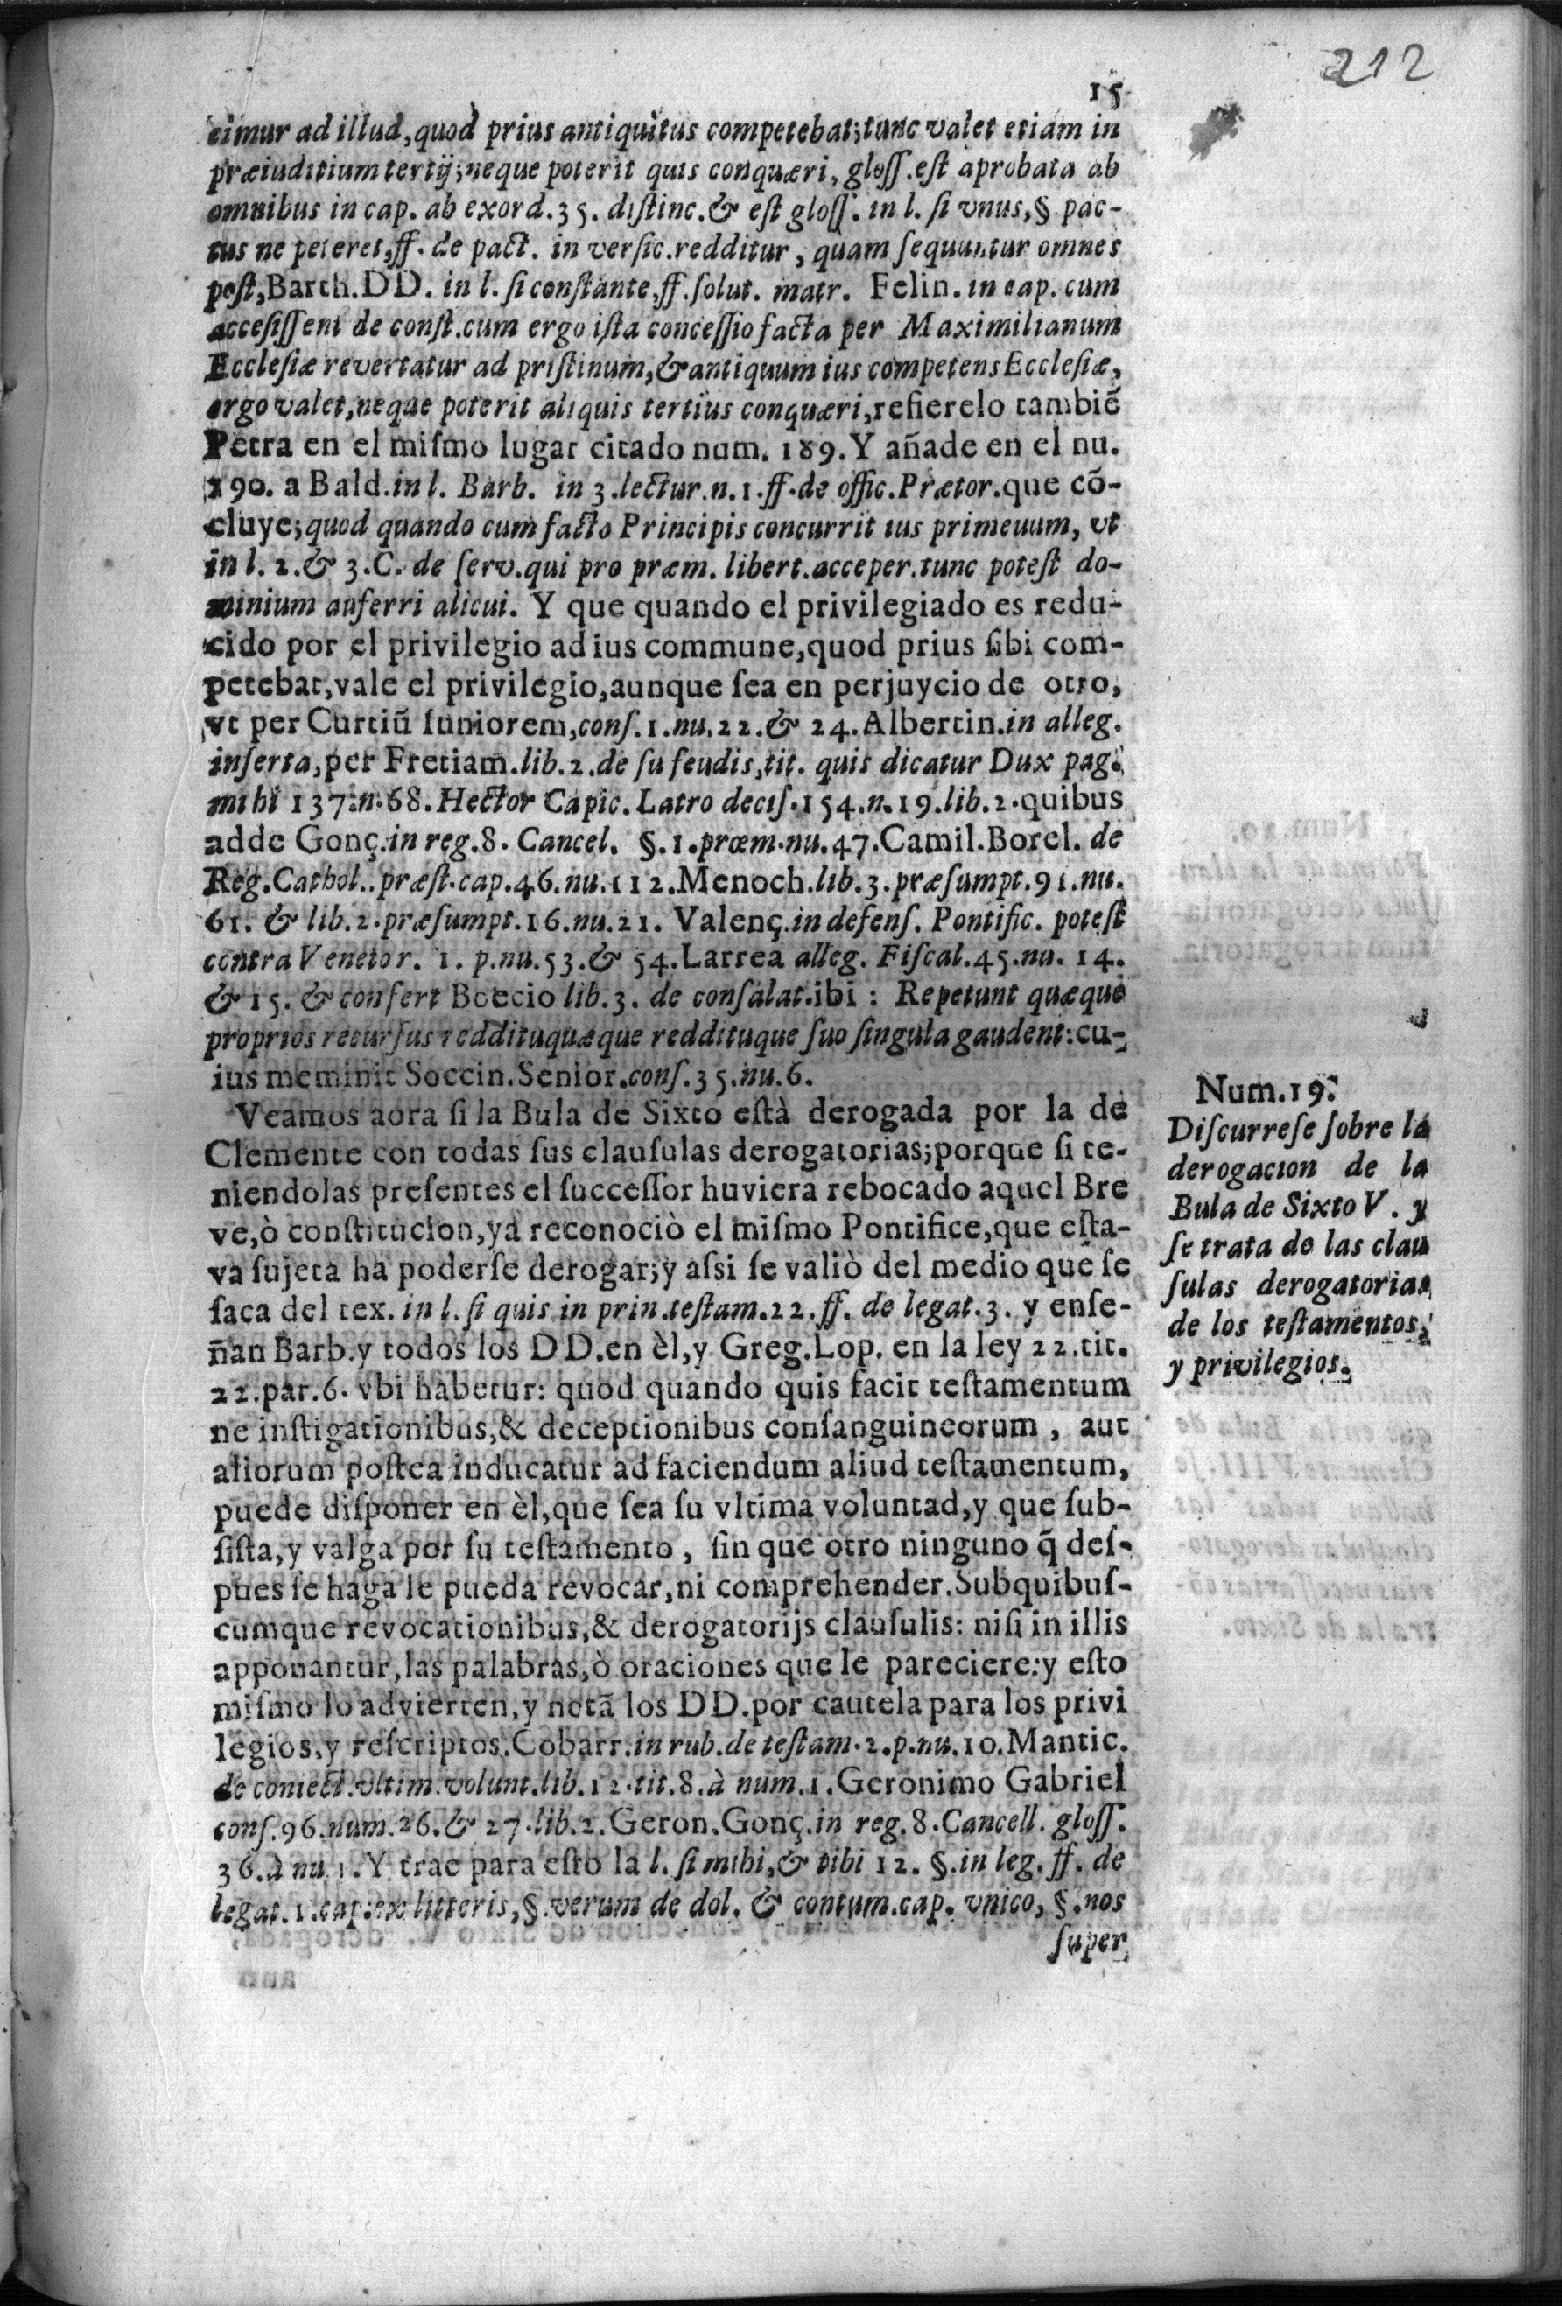 212
15
cimur ad illud, quod prius antiquitus competebat; tunc valet etiam in
præiuditium tertij; neque poterit quis conquæri, gloſſ. eſt aprobata ab
omnibus in cap. ab exord. 35. diſtinc. & eſt gloſſ. in l. ſi vnus, § pac-
tus ne peteret, ff. de pact. in verſic. redditur, quam ſequuntur omnes
poſt, Barth. DD. in l. ſi conſtante, ff. ſolut. matr. Felin. in cap. cum
acceſiſſent de conſt. cum ergo iſta conceſſio facta per Maximilianum
Eccleſiæ revertatur ad priſtinum, & antiquum ius competens Eccleſiæ,
ergo valet, neque poterit aliquis tertius conquæri, refierelo tambiẽ
Petra en el miſmo lugar citado num. 189. Y añade en el nu.
190. a Bald. in l. Barb. in 3. lectur. n. 1. ff. de offic. Prætor. que cõ-
cluye; quod quando cum facto Principis concurrit ius primeuum, vt
in l. 2. & 3. C. de ſerv. qui pro præm. libert. acceper. tunc poteſt do-
minium auferri alicui. Y que quando el privilegiado es redu-
cido por el privilegio ad ius commune, quod prius ſibi com-
petebat, vale el privilegio, aunque ſea en perjuycio de otro,
vt per Curtiũ Iuniorem, conſ. 1. nu. 22. & 24. Albertin. in alleg.
inſerta, per Fretiam. lib. 2. de ſu feudis, tit. quis dicatur Dux pag.
mihi 137. n. 68. Hector Capic. Latro deciſ. 154. n. 19. lib. 2. quibus
adde Gonç. in reg. 8. Cancel. §. 1. præm. nu. 47. Camil. Borel. de
Reg. Cathol.. præſt. cap. 46. nu. 112. Menoch. lib. 3. præſumpt. 91. nu.
61. & lib. 2. præſumpt. 16. nu. 21. Valenç. in defenſ. Pontific. poteſt
contra Venetor. 1. p. nu. 53. & 54. Larrea alleg. Fiſcal. 45. nu. 14.
& 15. & confert Boecio lib. 3. de conſalat. ibi : Repetunt quæque
proprios recurſus reddituquæque reddituque ſuo ſingula gaudent: cu-
ius meminit Soccin. Senior. conſ. 35. nu. 6.
Veamos aora ſi la Bula de Sixto eſtà derogada por la de
Clemente con todas ſus clauſulas derogatorias; porque ſi te-
niendolas preſentes el ſucceſſor huviera rebocado aquel Bre
ve, ò conſtitucion, ya reconociò el miſmo Pontifice, que eſta-
va ſujeta ha poderſe derogar; y aſsi ſe valiò del medio que ſe
ſaca del tex. in l. ſi quis in prin. teſtam. 22. ff. de legat. 3. y enſe-
ñan Barb. y todos los DD. en èl, y Greg. Lop. en la ley 22. tit.
22. par. 6. vbi habetur: quod quando quis facit teſtamentum
ne inſtigationibus, & deceptionibus conſanguineorum, aut
aliorum poſtea inducatur ad faciendum aliud teſtamentum,
puede diſponer en èl, que ſea ſu vltima voluntad, y que ſub-
ſiſta, y valga por ſu teſtamento, ſin que otro ninguno q̃ deſ-
pues ſe haga le pueda revocar, ni comprehender. Subquibuſ-
cumque revocationibus, & derogatorijs clauſulis: niſi in illis
apponantur, las palabras, ò oraciones que le pareciere: y eſto
miſmo lo advierten, y notã los DD. por cautela para los privi
legios, y reſcriptos. Cobarr. in rub. de teſtam. 2. p. nu. 10. Mantic.
de coniect. vltim. volunt. lib. 12. tit. 8. à num. 1. Geronimo Gabriel
conſ. 96. num. 26. & 27. lib. 2. Geron. Gonç. in reg. 8. Cancell. gloſſ.
36. à nu. 1. Y trae para eſto la l. ſi mihi, & tibi 12. §. in leg. ff. de
legat. 1. cap. ex litteris, §. verum de dol. & contum. cap. vnico, §. nos
ſuper
Num. 19.
Diſcurreſe ſobre la
derogacion de la
Bula de Sixto V. y
ſe trata de las clau
ſulas derogatorias
de los teſtamentos,
y privilegios.